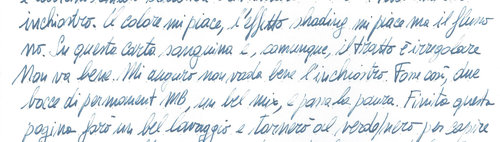 inchiostro. Il colore mi piace, l'effetto shading mi piace ma il flusso
no. In questa carta sanguina e, comunque, il tratto è irregolare
Non va bene. Mi auguro non vada bene l'inchiostro. Fare così, due
bocce di permanent MB, un bel mix, e passa la paura. Finita questa
pagina farò un bel lavaggio e tornerò al verde/nero per capire